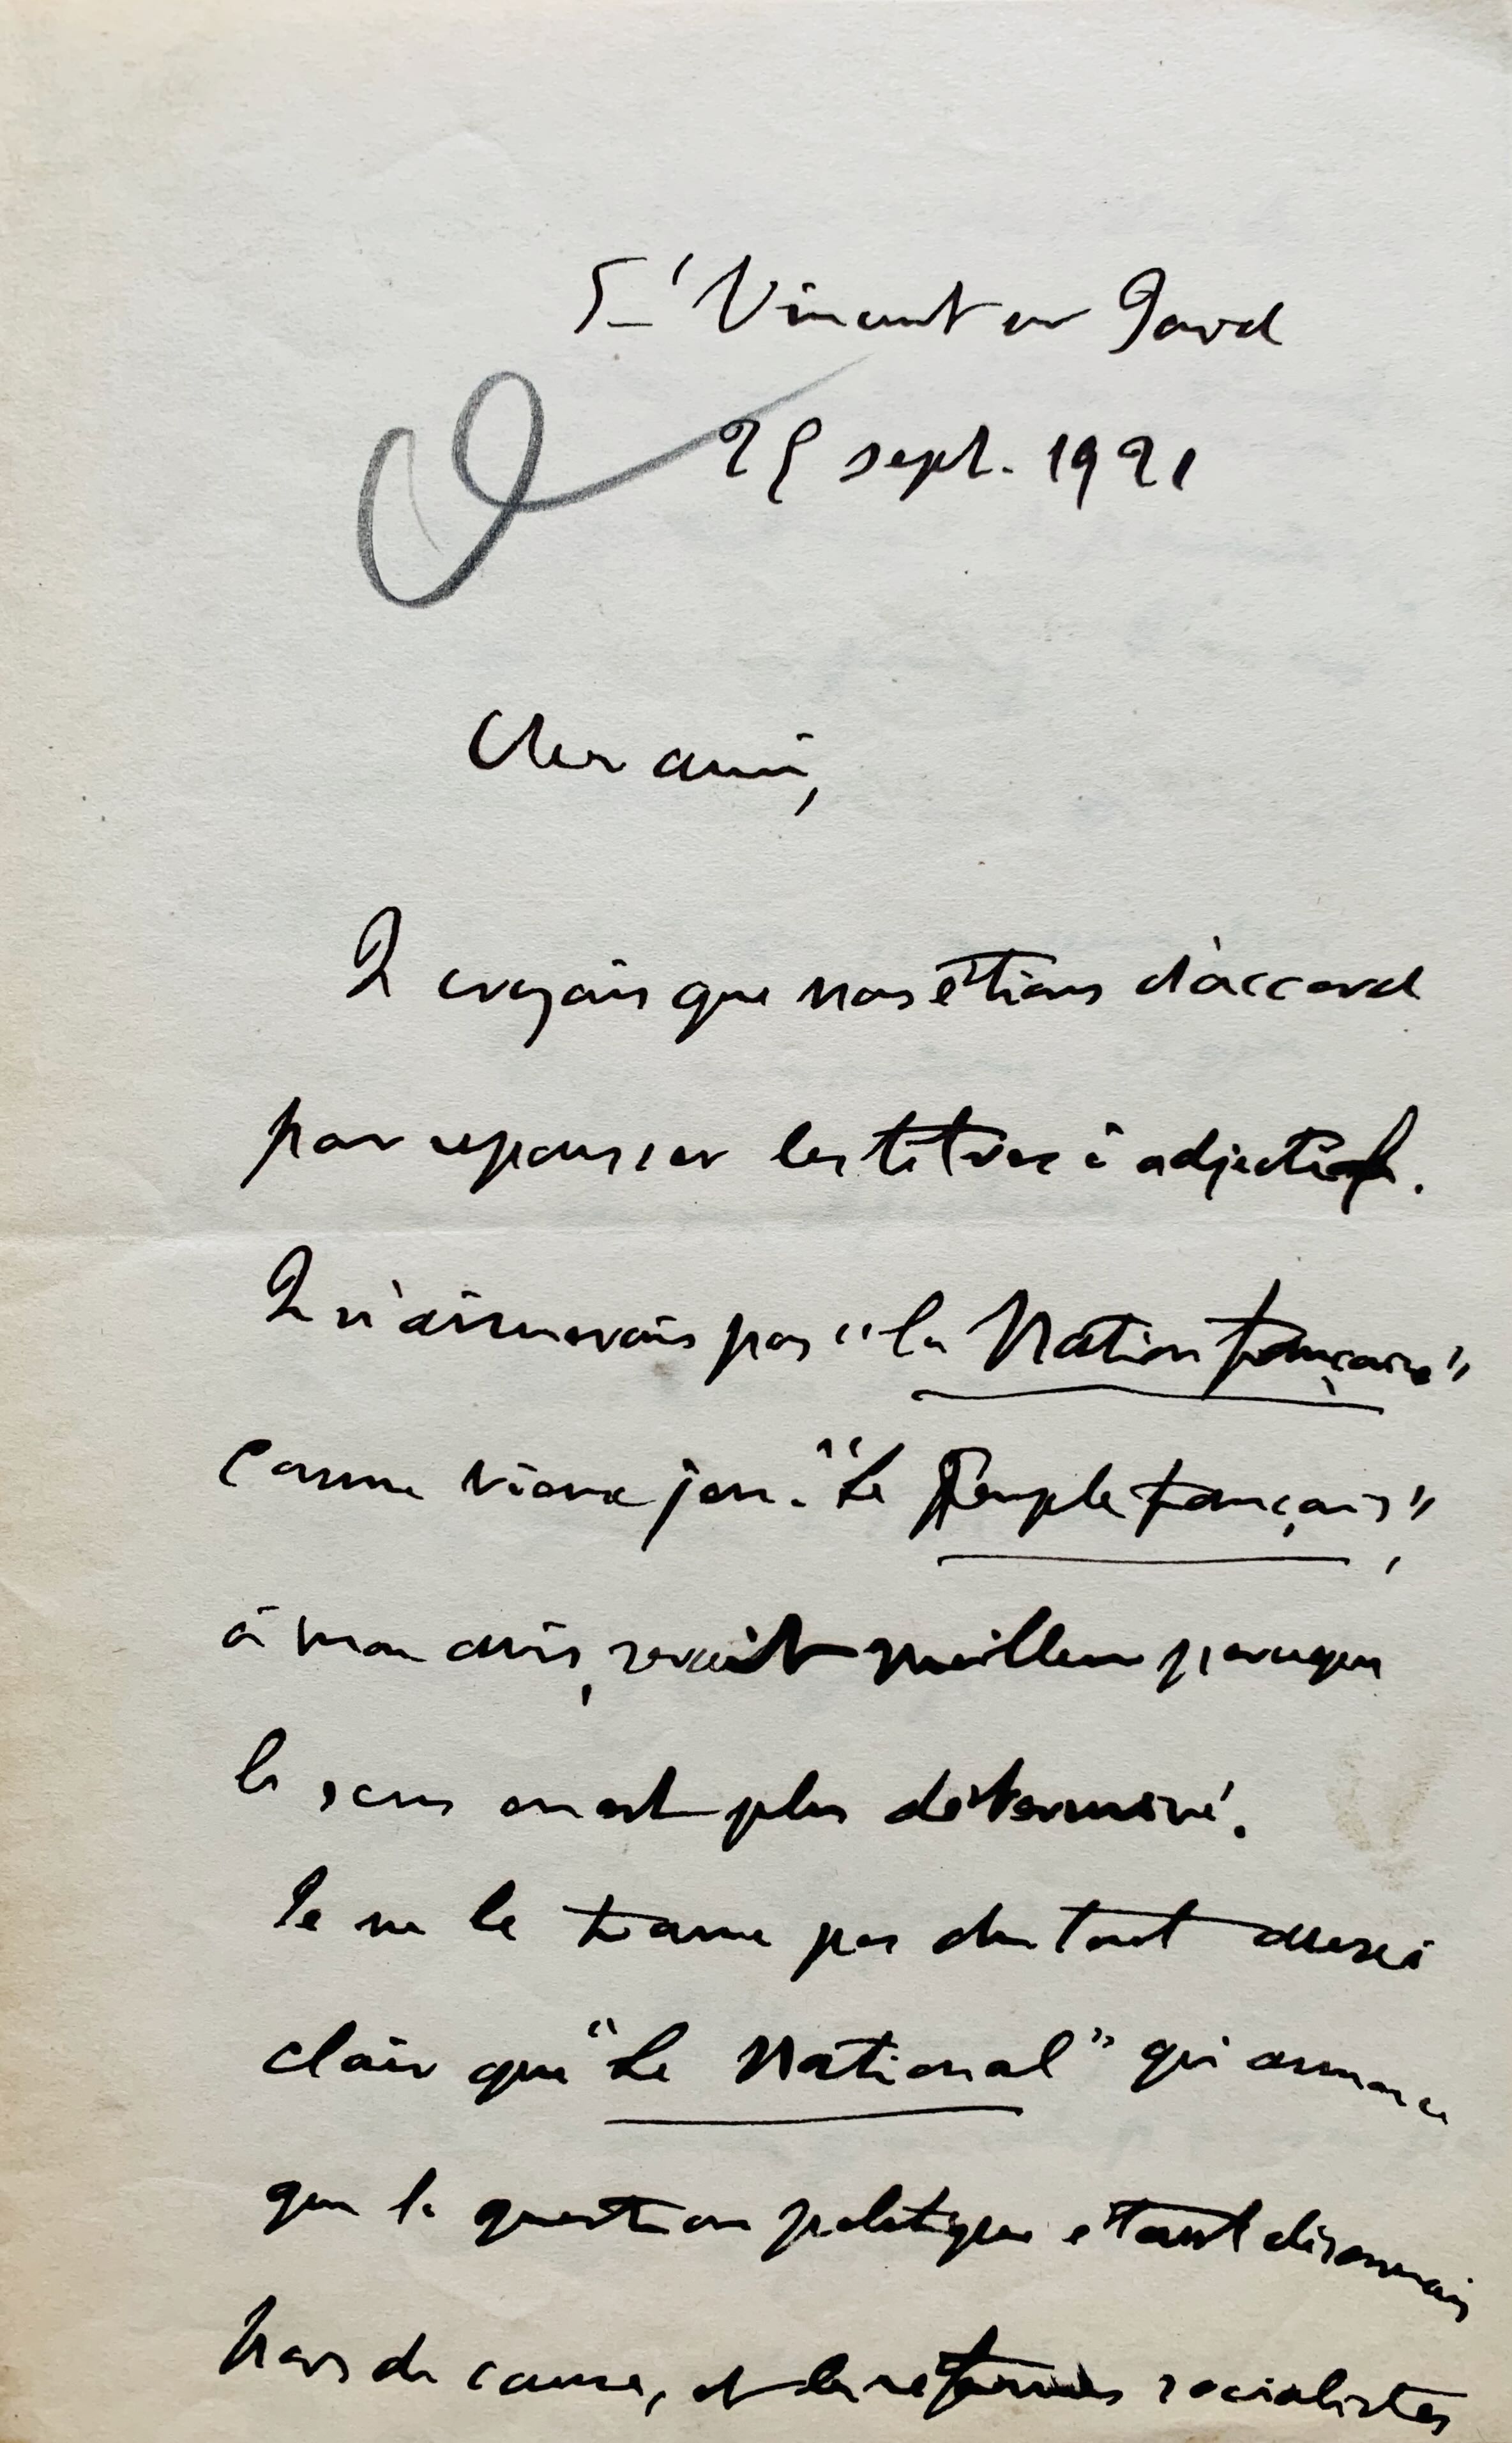 St Vincent en Gard
25 sept. 1921
Cher ami,
Je croyais que nous étions d'accord
pour repousser les titres à adjectif.
Je n'aimerais pas "la Nation française"
comme titre je "Le Peuple français",
à mon avis, serait meilleur parce que
le sens en est plus déterminé.
Je ne le trouve pas du tout aussi
clair que "Le National" qui annonce
que la question politique étant désormais
hors de cause, et les réformes socialistes